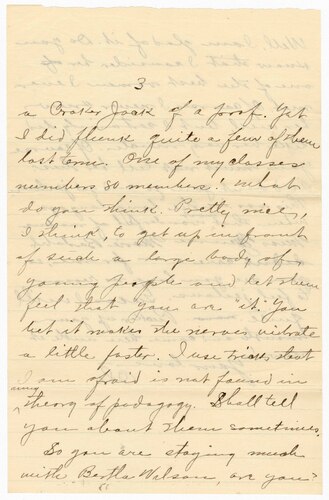 3
a Craker Jack of a prof. Yet
I did flunk quite a few of them
last term. One of my classes
numbers 80 members! What
do you think. Pretty nice,
I think, to get up in front
of such a large body of
young people and let them
feel that you are "it." You
bet it makes the nerves vibrate
a little faster. I use tricks that
I am afraid is not found in
any theory of pedagogy. Shall tell
you about them sometimes.
So you are staying much
with Bertha Wilson, are you?